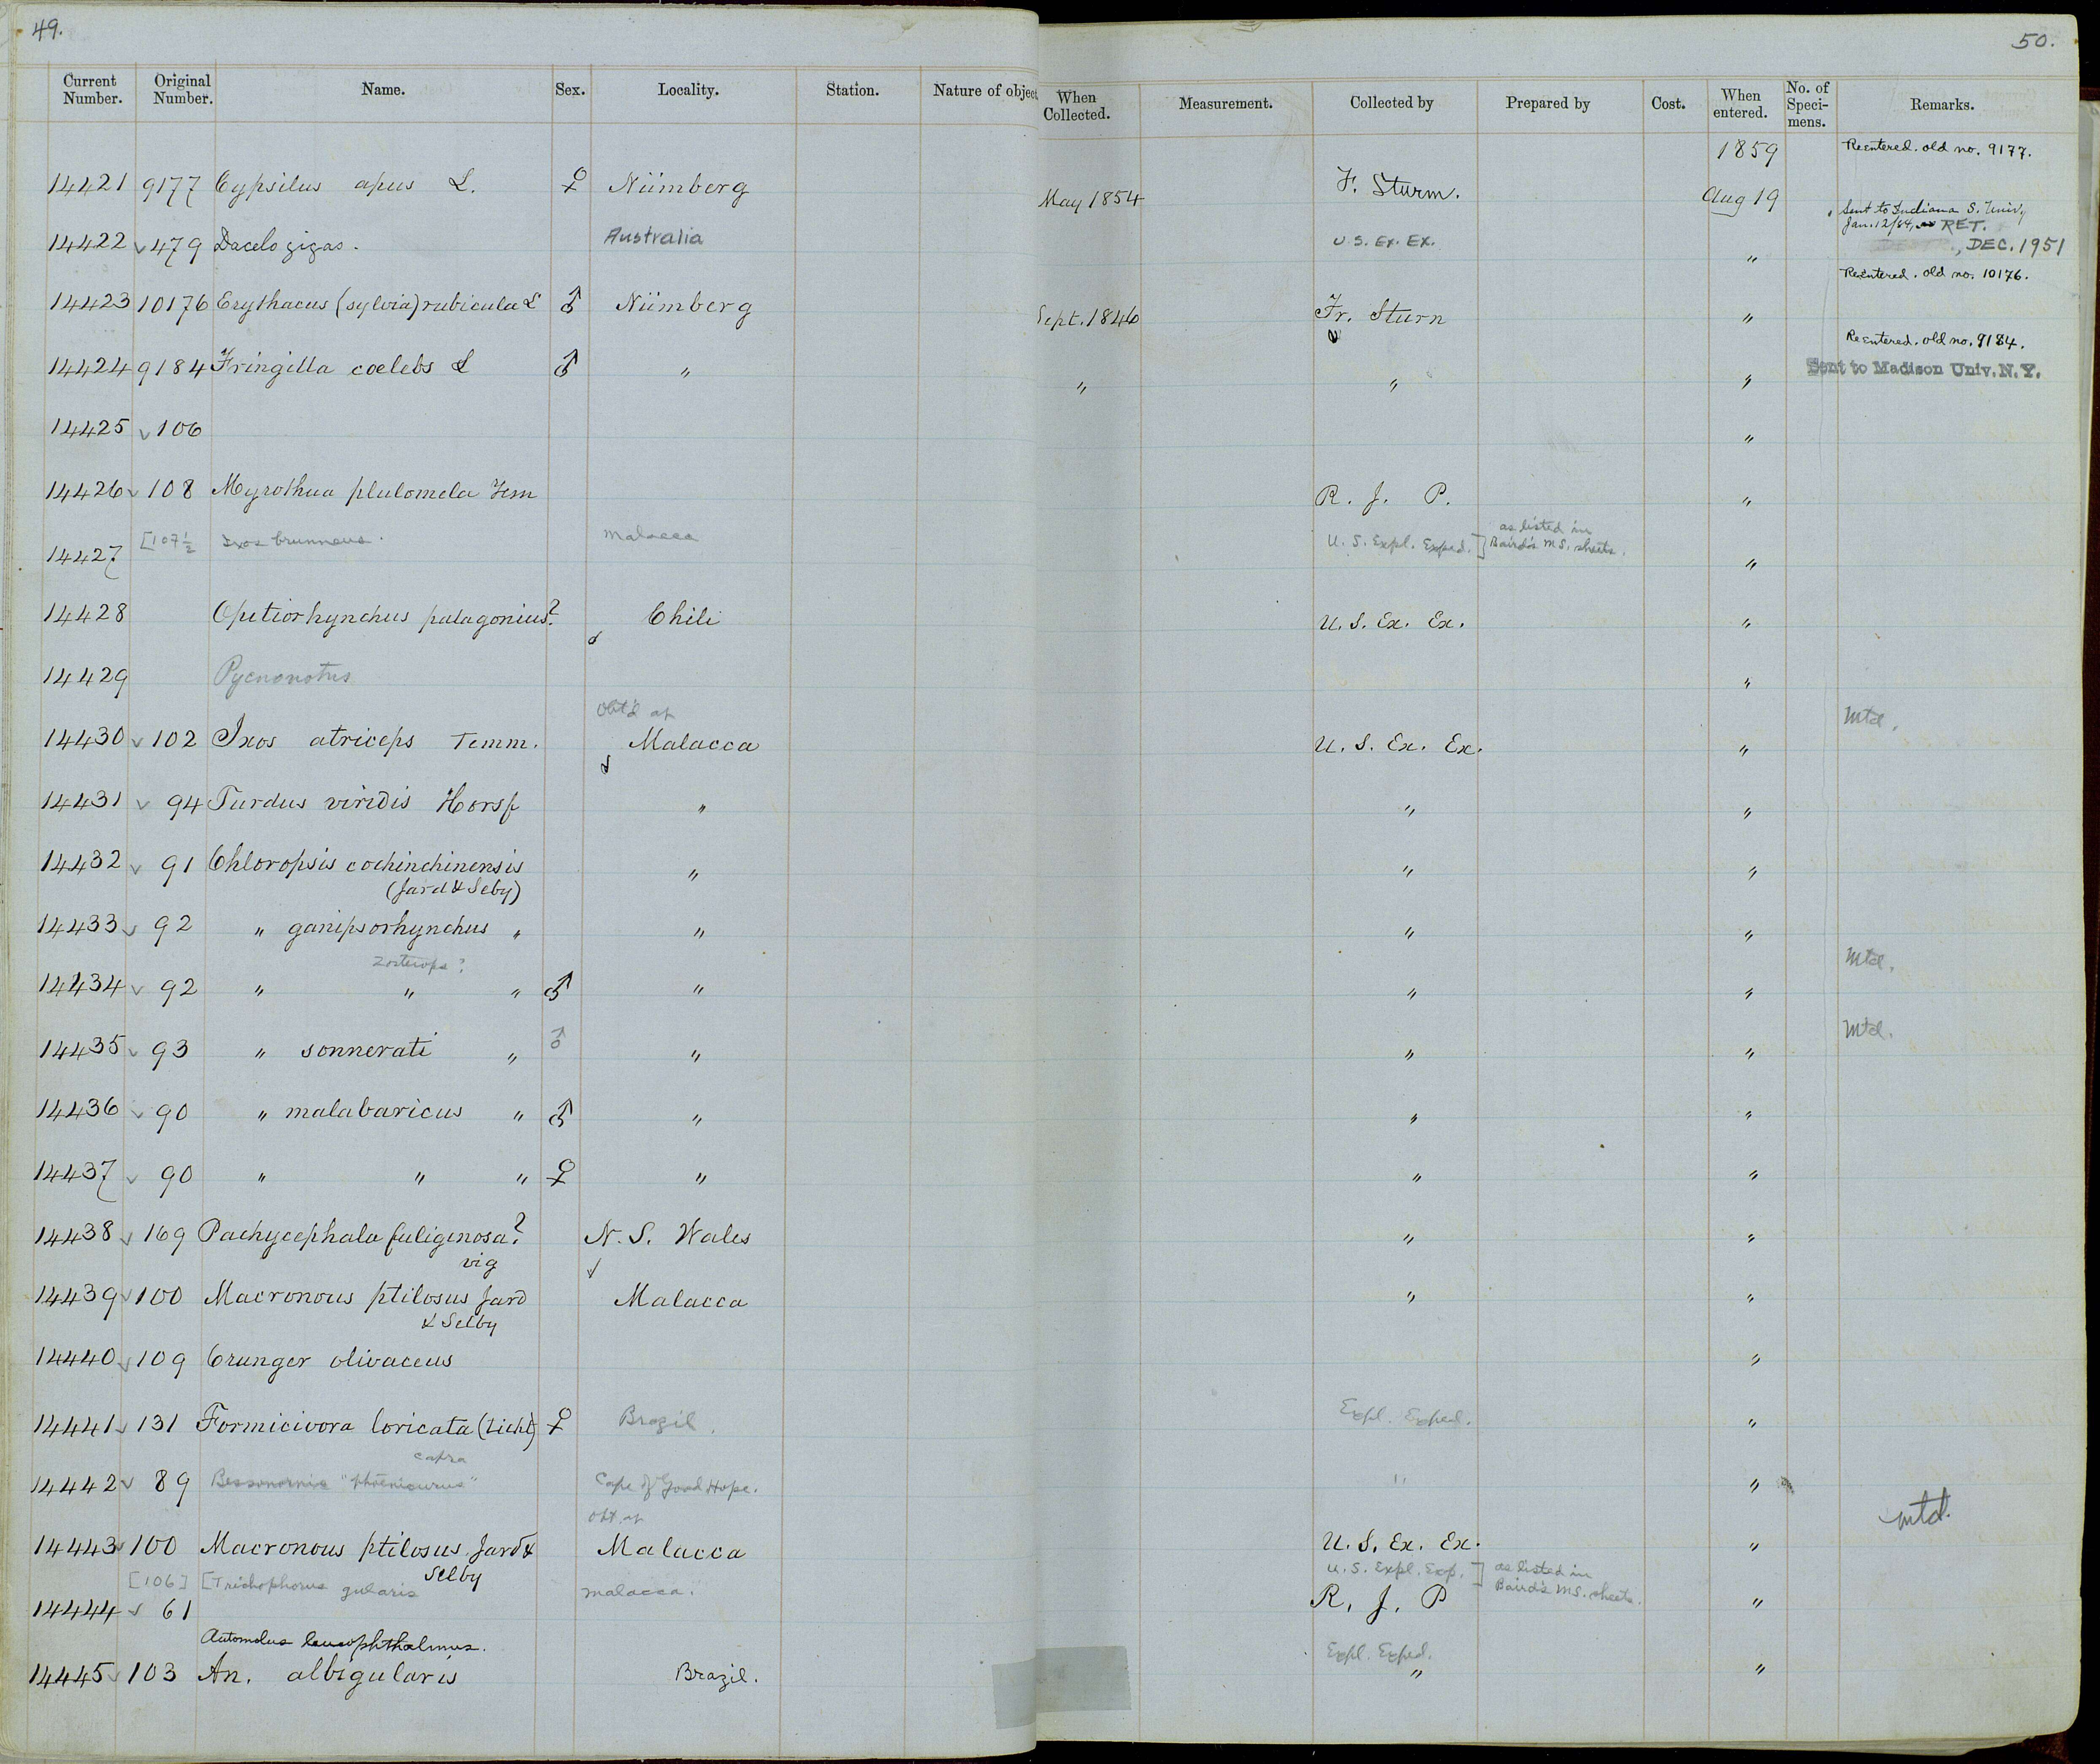 49.
50.
Current Number. Original Number. Name. Sex. Locality. Station. Nature of object When Collected. Measurement. Collected by Prepared by Cost. When entered. No. of Speci-mens. Remarks.
1859 Reentered. old no. 9177.
14421 9177 Cypsilus apus L. ♀ Nürnberg May 1854 F. Sturm. Aug 19
Sent to Indiana S. Univ, Jan. 12/84, RET.
14422 √ 479 Dacelo gigas. Australia U.S. Ex. Ex. " , DEC. 1951
Reentered. old no. 10176.
14423 10176 Erythacus (sylvia) rubicula L ♂ Nürnberg Sept. 1846 Fr. Sturn "
Reentered. old no. 9184.
14424 9184 Fringilla coelebs L ♂ " " " " Sent to Madison Univ. N.Y.
14425 √ 106 "
14426 √ 108 Myrothua plulomela Tem R. J. P. "
[107½ Ixos brunneus. Malacca U. S. Expl. Exped.] as listed in Baird's MS. sheets.
14427 "
14428 Opetiorhynchus patagonius? Chili U. S. Ex. Ex. "
14429 Pycnonotus "
Obt'd at Mtd.
14430 √ 102 Ixos atriceps Temm. Malacca U. S. Ex. Ex. "
14431 √ 94 Turdus viridis Horsf " " "
14432 √ 91 Chloropsis cochinchinensis " " "
(Jard & Selby)
14433 √ 92 " ganipsorhynchus " " " "
Zosterops? Mtd.
14434 √ 92 " " " ♂ " " "
14435 √ 93 " sonnerati " ♂ " " " Mtd.
14436 √ 90 " malabaricus " ♂ " " "
14437 √ 90 " " " ♀ " " "
14438 √ 169 Pachycephala fuliginosa? N. S. Wales " "
vig
14439 √ 100 Macronous ptilosus Jard Malacca " "
& Selby
14440 √ 109 Crunger olivaceus "
14441 √ 131 Formicivora loricata (Licht) ♀ Brazil. Expl. Exped. "
cafra
14442 √ 89 Bessonornis "phoenicurus" Cape of Good Hope. " "
Obt. at mtd.
14443 √ 100 Macronous ptilosus. Jard & Malacca U. S. Ex. Ex. "
Selby
[106] [Trichophorus gularis Malacca. U. S. Expl. Exp.] as listed in Baird's MS. sheets.
14444 √ 61 R. J. P "
Automolus leucophthalmus. Expl. Exped.
14445 √ 103 An. albigularis Brazil. " "